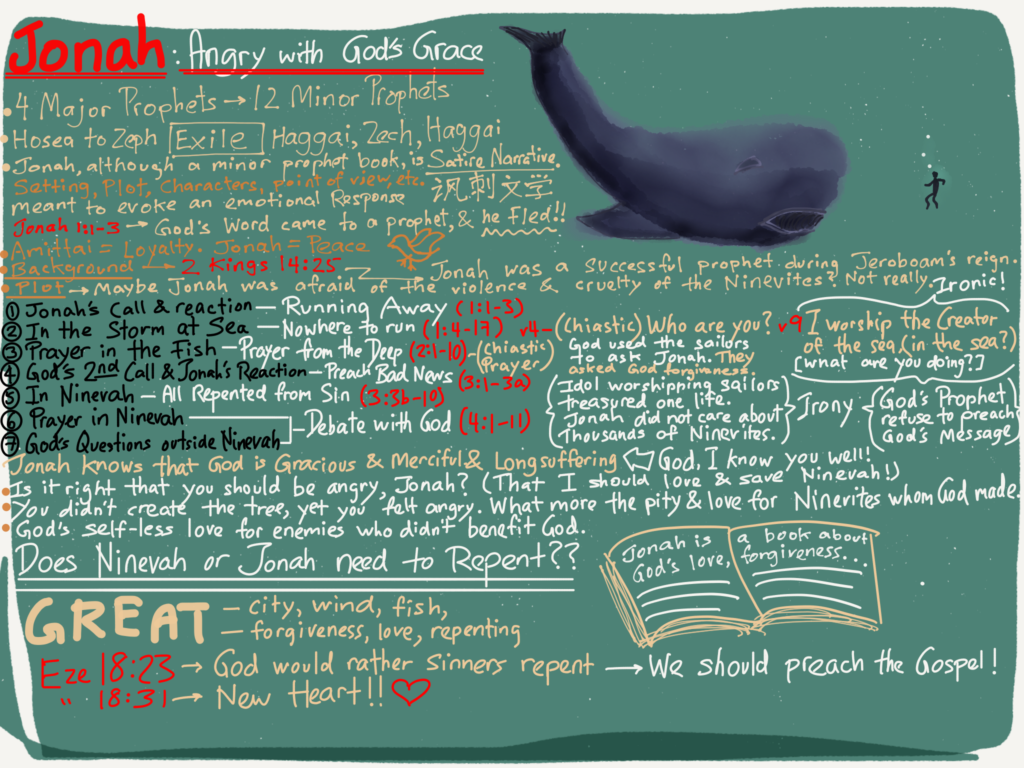 Jonah: Angry with God's Grace
• 4 Major Prophets → 12 Minor Prophets
• Hosea to Zeph Exile Haggai, Zech, Haggai
• Jonah, although a minor prophet book, is Satire Narrative.
Setting, Plot, Characters, point of view, etc. 讽刺文学
meant to evoke an emotional Response
Jonah 1:1-3 → God's Word came to a prophet, & he Fled!!
• Amittai = Loyalty. Jonah = Peace
• Background → 2 Kings 14:25 Jonah was a successful prophet during Jeroboam's reign.
• Plot → Maybe Jonah was afraid of the violence & cruelty of the Ninevites? Not really.
Ironic!
① Jonah's Call & reaction — Running Away (1:1-3)
② In the Storm at Sea — Nowhere to run (1:4-17) v4 - (Chiastic) Who are you? v9 I worship the Creator
of the sea. (in the sea?)
[what are you doing?]
God used the sailors
to ask Jonah. They
asked God forgivness.
③ Prayer in the Fish — Prayer from the Deep (2:1-10) - (Chiastic Prayer)
④ God's 2nd Call & Jonah's Reaction — Preach Bad News (3:1-3a)
⑤ In Ninevah — All Repented from Sin (3:3b-10)
⑥ Prayer in Ninevah
⑦ God's Questions outside Ninevah
— Debate with God (4:1-11)
Idol worshipping sailors
treasured one life.
Jonah did not care about
Thousands of Ninevites.
Irony
God's Prophet
refuse to preach
God's Message
Jonah knows that God is Gracious & Merciful & Longsuffering ⇦ God, I know you well!
• Is it right that you should be angry, Jonah? (That I should love & save Ninevah!)
• You didn't create the tree, yet you felt angry. What more the pity & love for Ninevites whom God made.
• God's self-less love for enemies who didn't benefit God.
Does Ninevah or Jonah need to Repent??
Jonah is
God's love,
a book about
forgiveness...
GREAT
– city, wind, fish,
– forgiveness, love, repenting
Eze 18:23 → God would rather sinners repent → We should preach the Gospel!
" 18:31 → New Heart!!